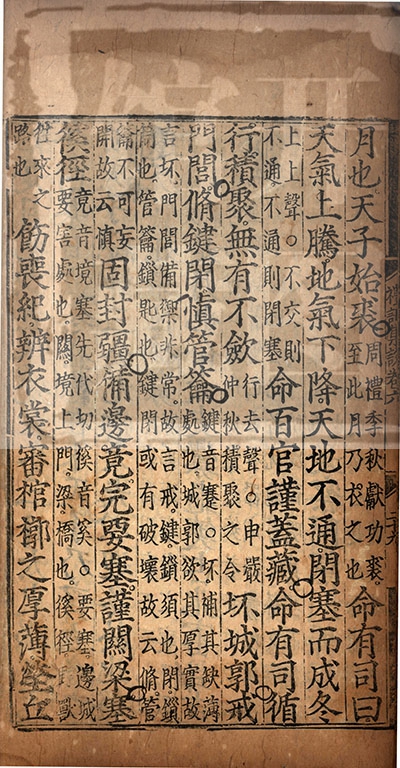 月也天子始裘周禮季秋獻功裘至此月乃衣之也命有司曰
天氣上騰地氣下降天地不通閉塞而成冬
上上聲○不交則不通不通則閉塞命百官謹蓋藏命有司循
行積聚無有不斂行去聲○申嚴仲秋積聚之令坏城郭戒
門閭脩鍵閉慎管籥鍵音蹇○坏補其缺薄處也城郭欲其厚實故
言坏門閭備禦非常故言戒鍵鎖須也閉鎖筒也管籥鎖匙也鍵閉或有破壞故云脩管
籥不可妄開故云慎固封疆備邊竟完要塞謹關梁塞
徯徑竟音境塞先代切徯音奚○要塞邊城要害處也關境上門梁橋也徯徑野獸
往來之路也飭喪紀辨衣裳審棺槨之厚薄塋丘